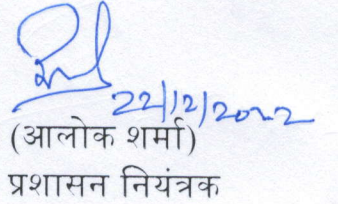 22/12/2022
(आलोक शर्मा)
प्रशासन नियंत्रक